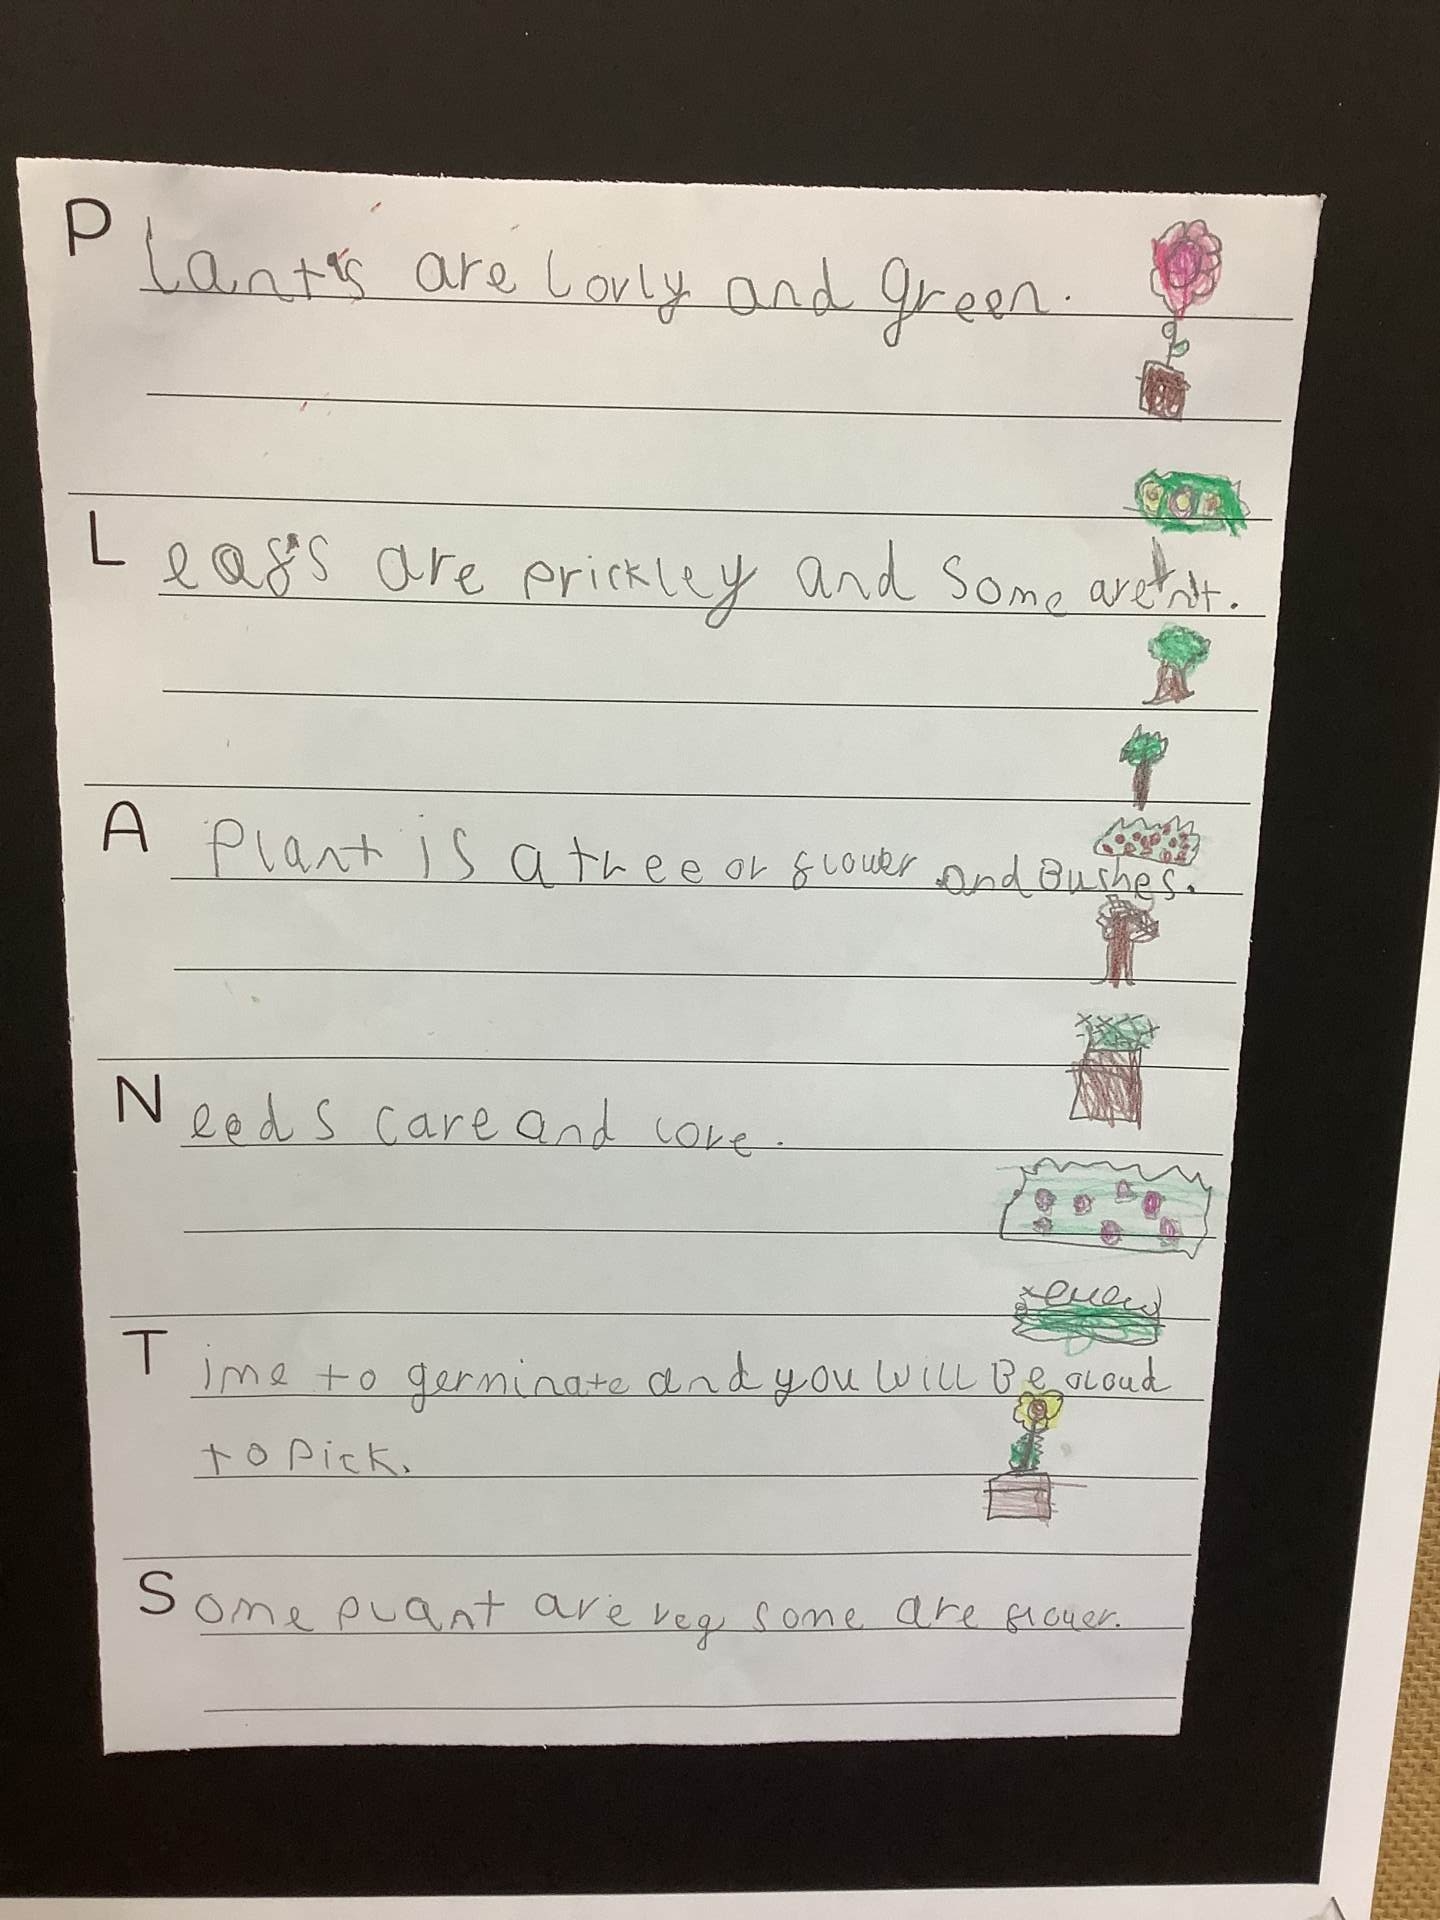 Plants are lovly and green.
Leafs are prickley and some aren't.
A Plant is a tree or flower and Bushes.
Needs care and love.
Time to germinate and you will Be aloud
to Pick.
Some plant are veg some are flower.